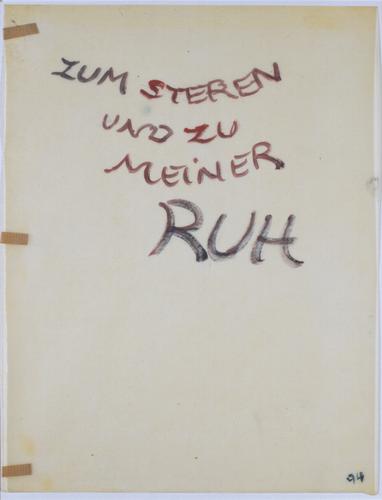 ZUM STEREN
UND ZU
MEINER
RUH
94